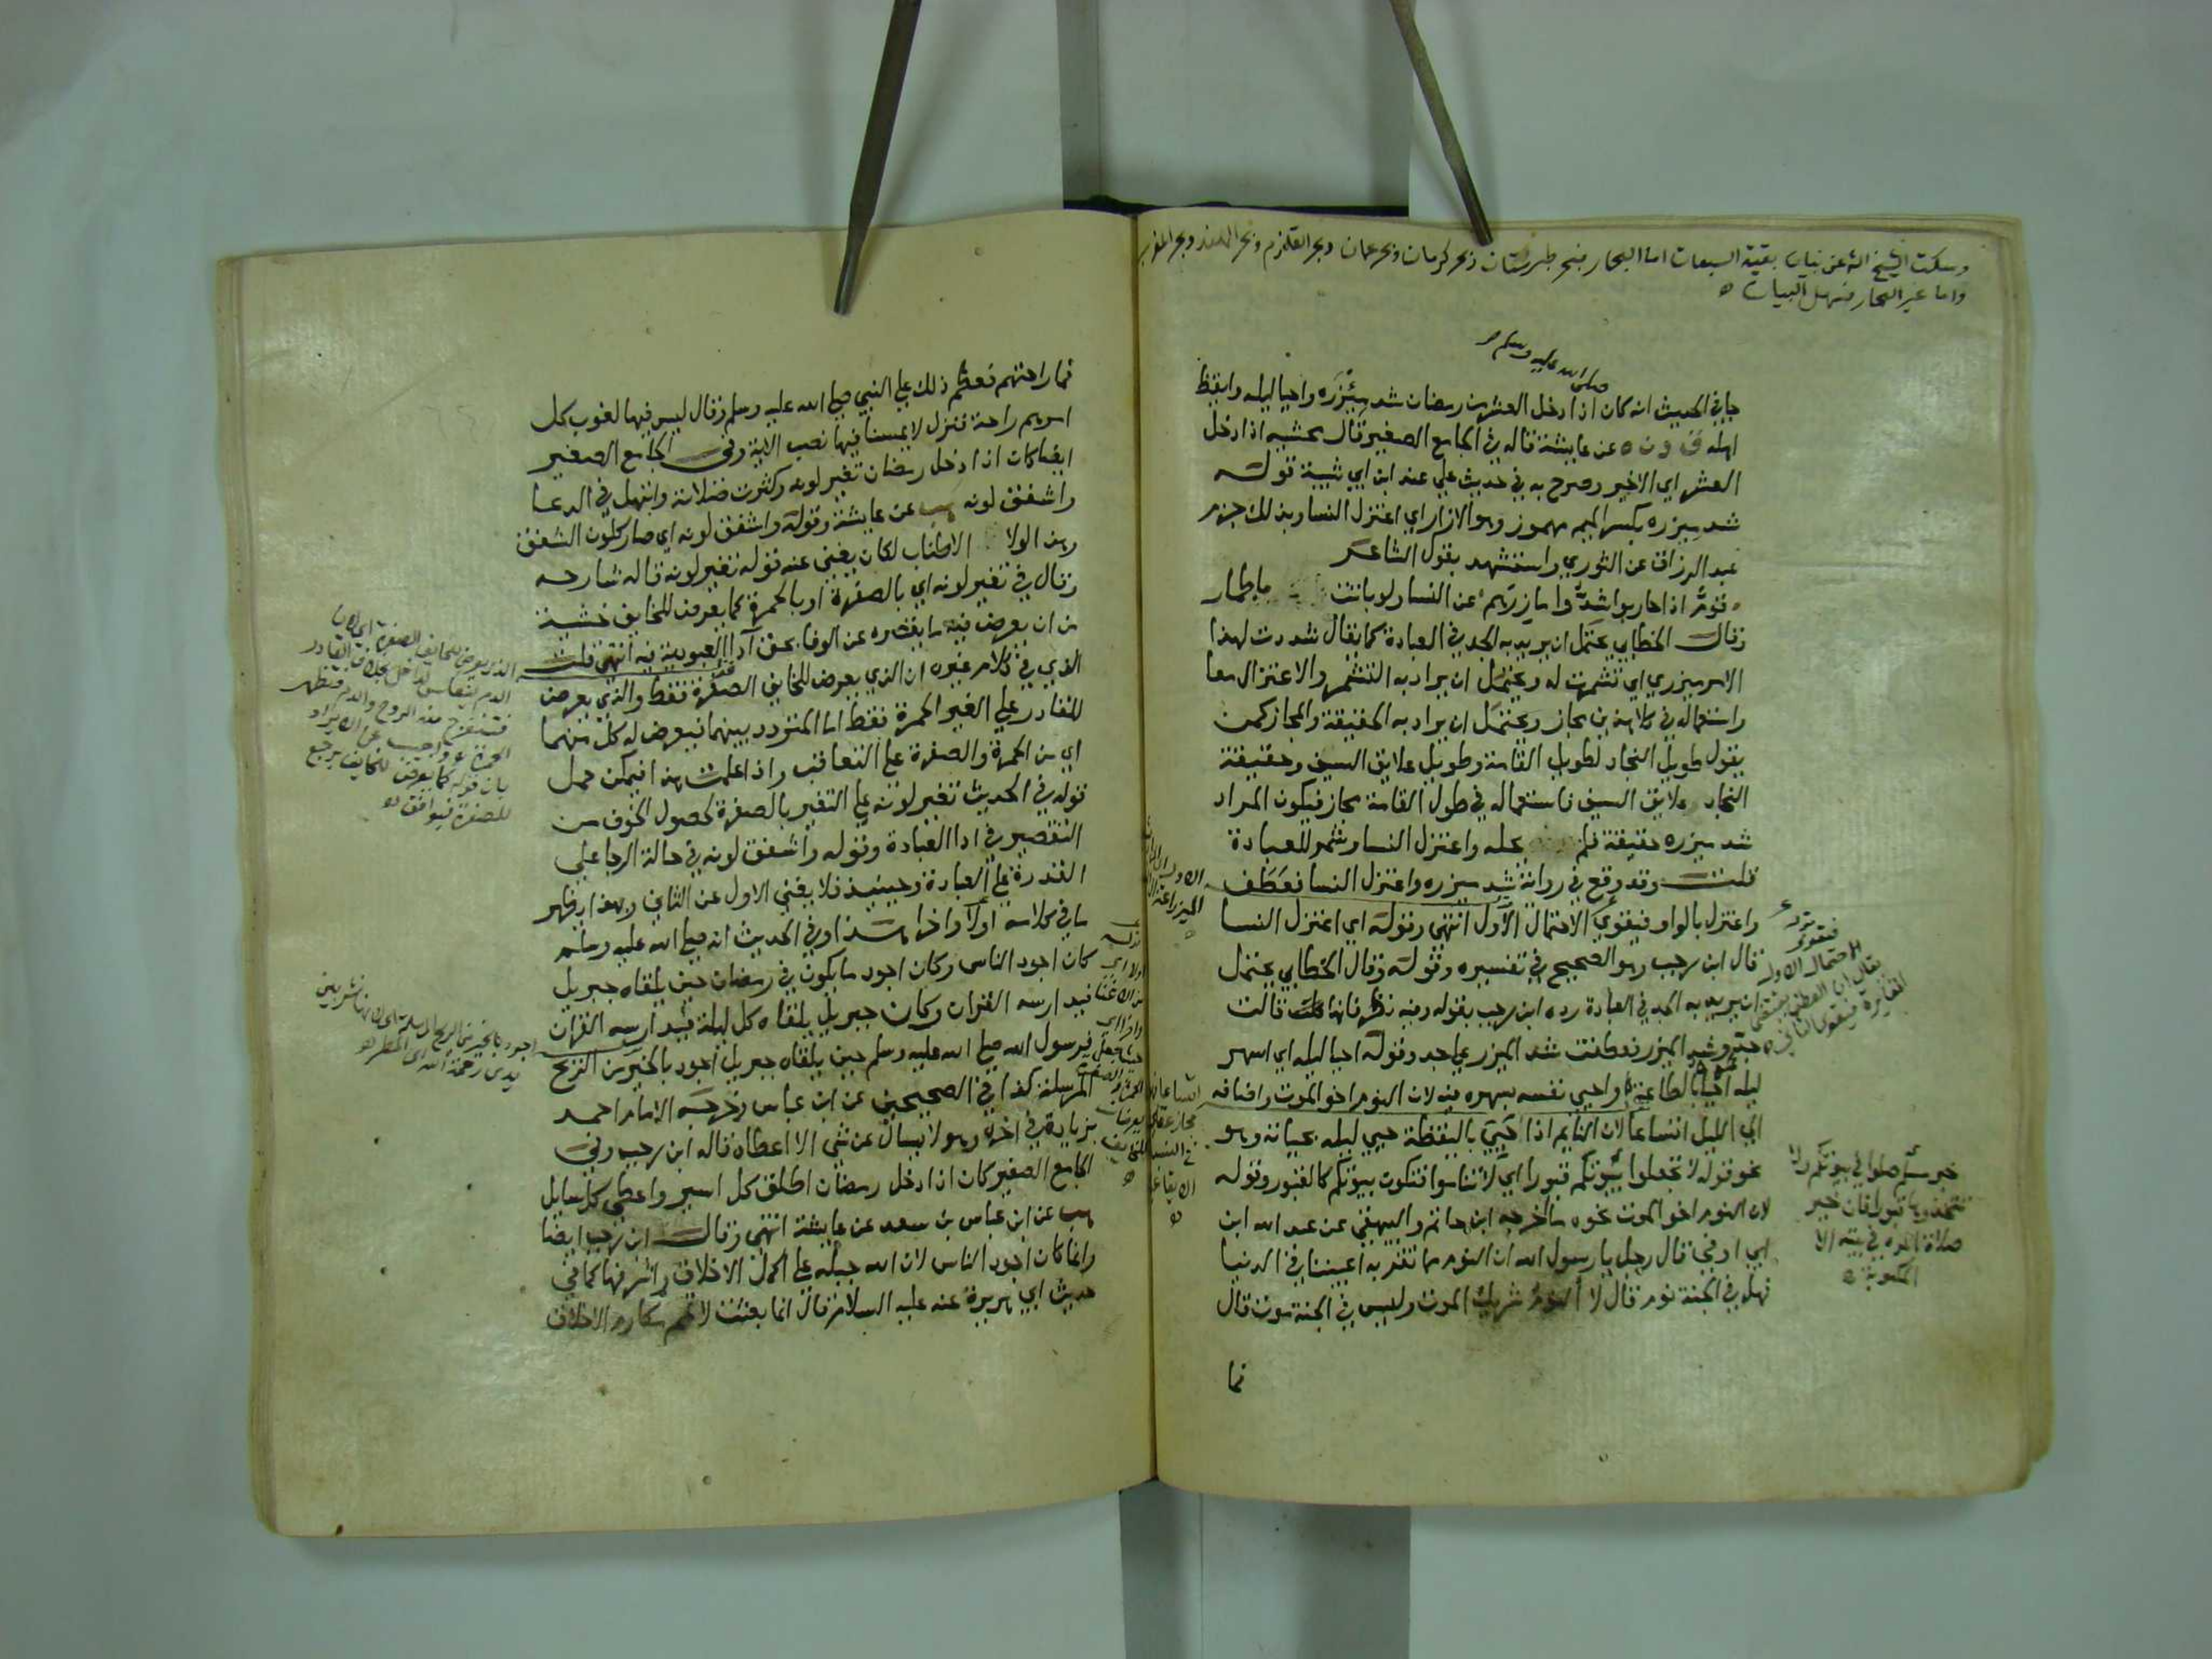 وسكت الشيخ الله عن بيان بقية السبعات اما البحار فبحر طبرستان وبحر كرمان وبحر عمان وبحر القلزم وبحر الهند وبحر المغرب
واما غير البحار فسهل البيان
صلى الله عليه وسلم
جا في الحديث انه كان اذا دخل العشر من رمضان شد مئزره واحيا ليله وايقظ
اهله ق د ن ه عن عايشة قاله في الجامع الصغير قال محشيه اذا دخل
العشر اي الاخير وصرح به في حديث علي عند ابن ابي شيبة قوله
شد ميزره بكسر الميم مهموز وهو الازار اي اعتزل النسا وبذلك جزم
عبد الرزاق عن الثوري واستشهد بقول الشاعر
قوم اذا حاربوا شدوا مازرهم عن النسا ولو باتت باطهار
وقال الخطابي يحتمل ان يريد به الجد في العبادة كما يقال شددت لهذا
الامر ميزري اي تشمرت له ويحتمل ان يراد به التشمر والاعتزال معا
واستعماله في كلا من مجاز ويحتمل ان يراد به الحقيقة والمجاز كمن
يقول طويل النجاد لطويل القامة وطويل علايق السيف وحقيقة
النجاد علايق السيف فاستعماله في طول القامة مجاز فيكون المراد
شد ميزره حقيقة فلم يحله واعتزل النسا وشمر للعبادة
قلت وقد وقع في رواية شد ميزره واعتزل النسا فعطف
واعتزل بالواو فيقوي الاحتمال الاول انتهى وقوله اي اعتزل النسا
قال ابن رجب وهو الصحيح في تفسيره وقوله وقال الخطابي يحتمل
ان يريد به الجد في العبادة رده ابن رجب بقوله وفيه نظر فانها قالت
جد وشد الميزر فعطفت شد الميزر على جد وقوله احيا ليله اي اسهر
ليله احيا بالطاعة واحيي نفسه بسهره فيه لان النوم اخو الموت واضافه
الي الليل اتساعا لان النايم اذا احيي باليقظة حيي ليله بحياته وهو
نحو قوله لا تجعلوا بيوتكم قبورا اي لا تناموا فتكون بيوتكم كالقبور وقوله
لان النوم اخو الموت نحوه ما اخرجه ابن حاتم والبيهقي عن عبد الله ابن
ابي اوفي قال رجل يا رسول الله ان النوم مما تقر به اعيننا في الدنيا
فهل في الجنة نوم قال لا النوم شريك الموت وليس في الجنة موت قال
فما
فيقوى
الاحتمال الاول
خبر مسلم صلوا في بيوتكم ولا
تتخذوها قبورا فان خير
صلاة المرء في بيته الا
المكتوبة
فما راحتهم فعظم ذلك علي النبي صلي الله عليه وسلم وقال ليس فيها لغوب كل
امرهم راحة فنزل لا يمسنا فيها نصب الاية وفي الجامع الصغير
ايضا كان اذا دخل رمضان تغير لونه وكثرت صلاته وابتهل في الدعا
واشفق لونه هب عن عايشة وقوله واشفق لونه اي صار كلون الشفق
وهذا لولا الاطناب لكان يغني عنه قوله تغير لونه قاله شارحه
وقال في تغير لونه اي بالصفرة او بالحمرة كما يعرض للخايف خشية
من ان يعرض فيه ما يقصره عن الوفا بحق اداء العبودية فيه انتهي قلت
الذي في كلام غيره ان الذي يعرض للخايف الصفرة فقط والذي يعرض
للقادر علي الغير الحمرة فقط اما المتردد بينهما فيعرض له كل منهما
اي من الحمرة والصفرة علي التعاقب واذا علمت هذا فيمكن حمل
قوله في الحديث تغير لونه علي التغير بالصفرة لحصول الخوف من
التقصير في ادا العبادة وقوله واشفق لونه في حالة الرجا علي
القدرة علي العبادة وحينيذ فلا يغني الاول عن الثاني وبهذا يظهر
ما في كلامه اولا واخرا هذا وفي الحديث انه صلي الله عليه وسلم
كان اجود الناس وكان اجود ما يكون في رمضان حين يلقاه جبريل
فيدارسه القران وكان جبريل يلقاه كل ليلة فيدارسه القران
فرسول الله صلي الله عليه وسلم حين يلقاه جبريل اجود بالخير من الريح
المرسلة كذا في الصحيحين عن ابن عباس وخرجه الامام احمد
بزيادة في اخره وهو لا يسال عن شي الا اعطاه قاله ابن رجب وفي
الجامع الصغير كان اذا دخل رمضان اطلق كل اسير واعطي كل سايل
هب عن ابن عباس بن سعد عن عايشة انتهي وقال ابن رجب ايضا
وانما كان اجود الناس لان الله جبله علي اكمل الاخلاق واشرفها كما في
حديث ابي هريرة عنه عليه السلام قال انما بعثت لاتمم مكارم الاخلاق
الذي يعرض للخايف الصفرة اي لان
الحمرة واجيب عن الايراد
بان قوله كما يعرض للخايف يرجع
للصفرة فيوافق